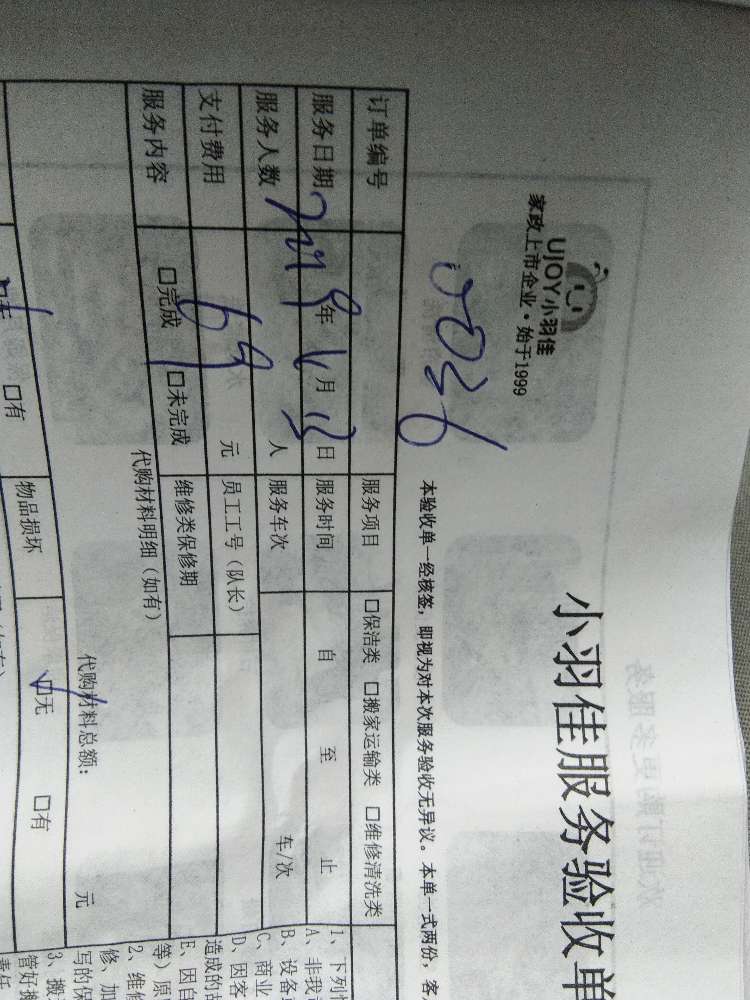 UJOY小羽佳
家政上市企业·始于1999
小羽佳服务验收单
0036
本验收单一经核签，即视为对本次服务验收无异议。本单一式两份，客
订单编号 服务项目 □保洁类 □搬家运输类 □维修清洗类
服务日期 年 月 日 服务时间 自 至 止
服务人数 人 服务车次 车/次
支付费用 69 元 员工工号（队长）
服务内容 □完成 □未完成 维修类保修期
代购材料明细（如有）
代购材料总额： 元
□无 □有 物品损坏 □无 □有
1、下列
A、非我
B、设备
C、商业
D、因客
造成的
E、因自
等）原
2、维修
修、加
写的保
3、搬
管好搬
责任